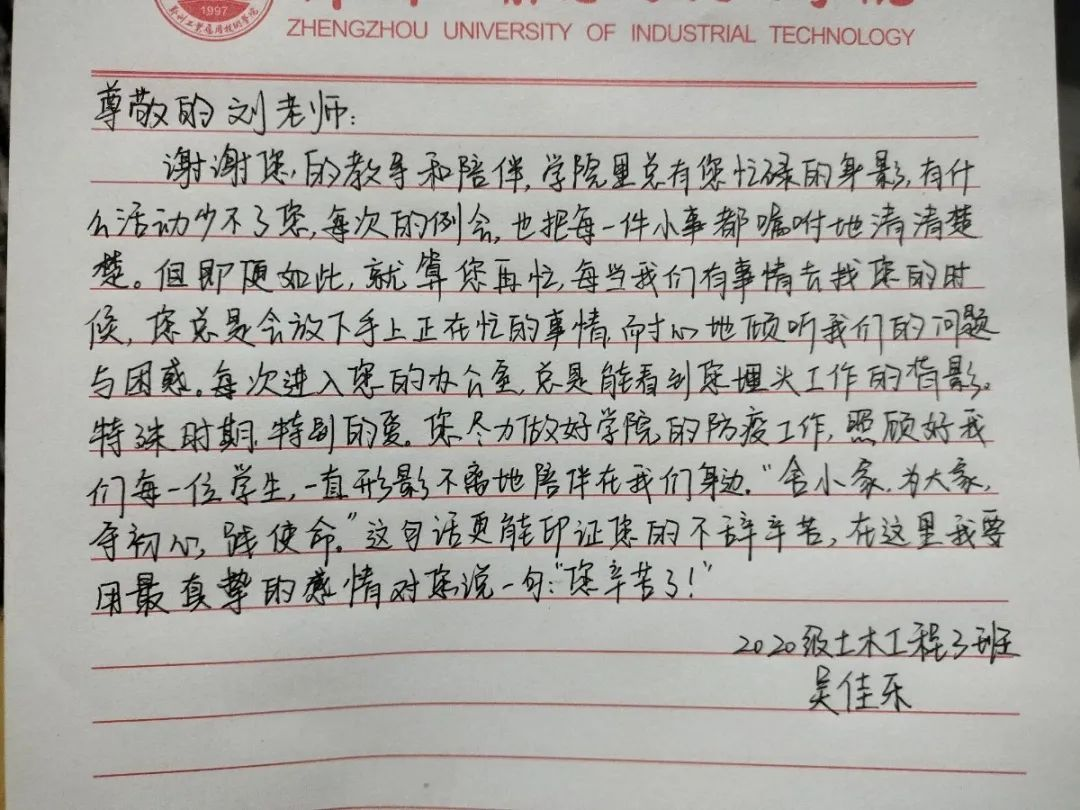 1997
郑州工业应用技术学院
ZHENGZHOU UNIVERSITY OF INDUSTRIAL TECHNOLOGY
尊敬的刘老师:
谢谢您的教导和陪伴,学院里总有您忙碌的身影,有什
么活动少不了您,每次的例会,也把每一件小事都嘱咐地清清楚
楚。但即便如此,就算您再忙,每当我们有事情去找您的时
候,您总是会放下手上正在忙的事情,耐心地倾听我们的问题
与困惑。每次进入您的办公室,总是能看到您埋头工作的背影。
特殊时期,特别的爱。您尽力做好学院的防疫工作,照顾好我
们每一位学生,一直形影不离地陪伴在我们身边。“舍小家,为大家,
守初心,践使命。”这句话更能印证您的不辞辛苦,在这里我要
用最真挚的感情对您说一句:“您辛苦了!”
2020级土木工程3班
吴佳乐